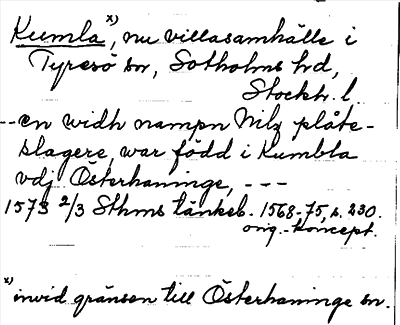 Kumla x), nu villasamhälle i
Tyresö sn, Sotholms hd,
Stockh. l
-- en widh nampn Nilz plåte-
slagere, war född i Kumbla
vdj Österhaninge, ---
1573 2/3 Sthms tänkeb. 1568-75, s. 230.
orig.-koncept.
x) invid gränsen till Österhaninge sn.